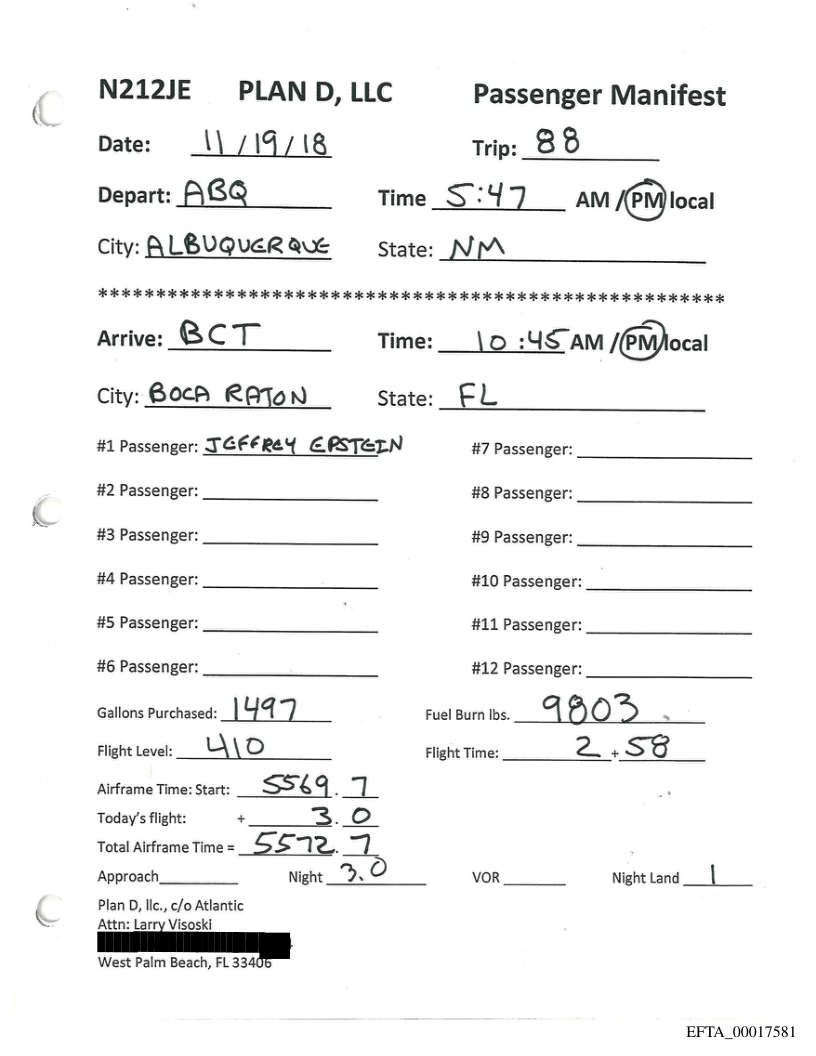 N212JE PLAN D, LLC Passenger Manifest
Date: 11/19/18 Trip: 88
Depart: ABQ Time 5:47 AM /PM local
City: ALBUQUERQUE State: NM
******************************************************
Arrive: BCT Time: 10:45 AM /PM local
City: BOCA RATON State: FL
#1 Passenger: JEFFREY EPSTEIN #7 Passenger:
#2 Passenger: #8 Passenger:
#3 Passenger: #9 Passenger:
#4 Passenger: #10 Passenger:
#5 Passenger: #11 Passenger:
#6 Passenger: #12 Passenger:
Gallons Purchased: 1497 Fuel Burn lbs. 9803
Flight Level: 410 Flight Time: 2 + 58
Airframe Time: Start: 5569.7
Today's flight: + 3.0
Total Airframe Time = 5572.7
Approach Night 3.0 VOR Night Land 1
Plan D, llc., c/o Atlantic
Attn: Larry Visoski
West Palm Beach, FL 33406
EFTA_00017581